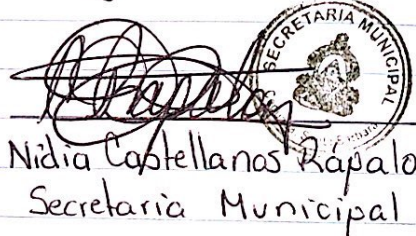 SECRETARIA MUNICIPAL
Nidia Castellanos Rápalo
Secretaria Municipal